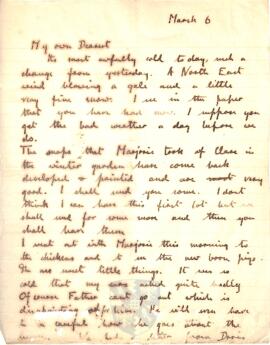 March 6
My own Dearest
Its most awfully cold today, such a
change from yesterday. A North East
wind blowing a gale and a little
very fine snow. I see in the paper
that you have had snow. I suppose you
get the bad weather a day before we
do.
The snaps that Marjorie took of Class in
the winter garden have come back
developed & printed and are most very
good. I shall send you some. I dont
think I can have this first lot but we
shall send for some more and then you
shall have them
I went out with Marjorie this morning to
the chickens and to see the new born pigs.
The are most little things. It was so
cold that my ears ached quite badly
Of course Father cant go out which is
disappointing for him. He will even have
to be careful how he goes about the
from Doris